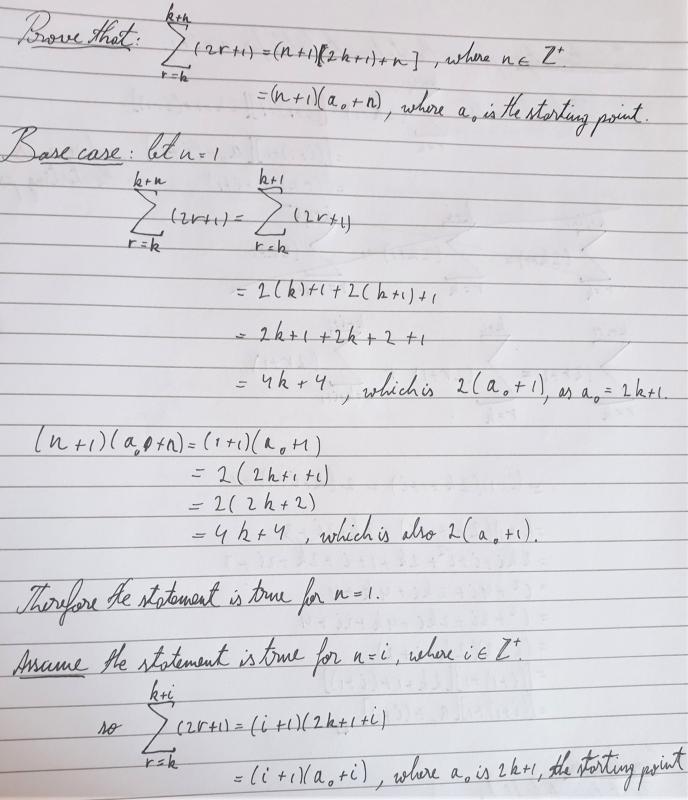 Prove that: \sum_{r=k}^{k+n} (2r+1) = (n+1)[(2k+1)+n], where n ∈ Z⁺.
= (n+1)(a₀+n), where a₀ is the starting point.
Base case: let n=1
\sum_{r=k}^{k+n} (2r+1) = \sum_{r=k}^{k+1} (2r+1)
= 2(k)+1+2(k+1)+1
= 2k+1+2k+2+1
= 4k+4, which is 2(a₀+1), as a₀=2k+1.
(n+1)(a₀+n) = (1+1)(a₀+1)
= 2(2k+1+1)
= 2(2k+2)
= 4k+4, which is also 2(a₀+1).
Therefore the statement is true for n=1.
Assume the statement is true for n=i, where i ∈ Z⁺.
so \sum_{r=k}^{k+i} (2r+1) = (i+1)(2k+1+i)
= (i+1)(a₀+i), where a₀ is 2k+1, the starting point